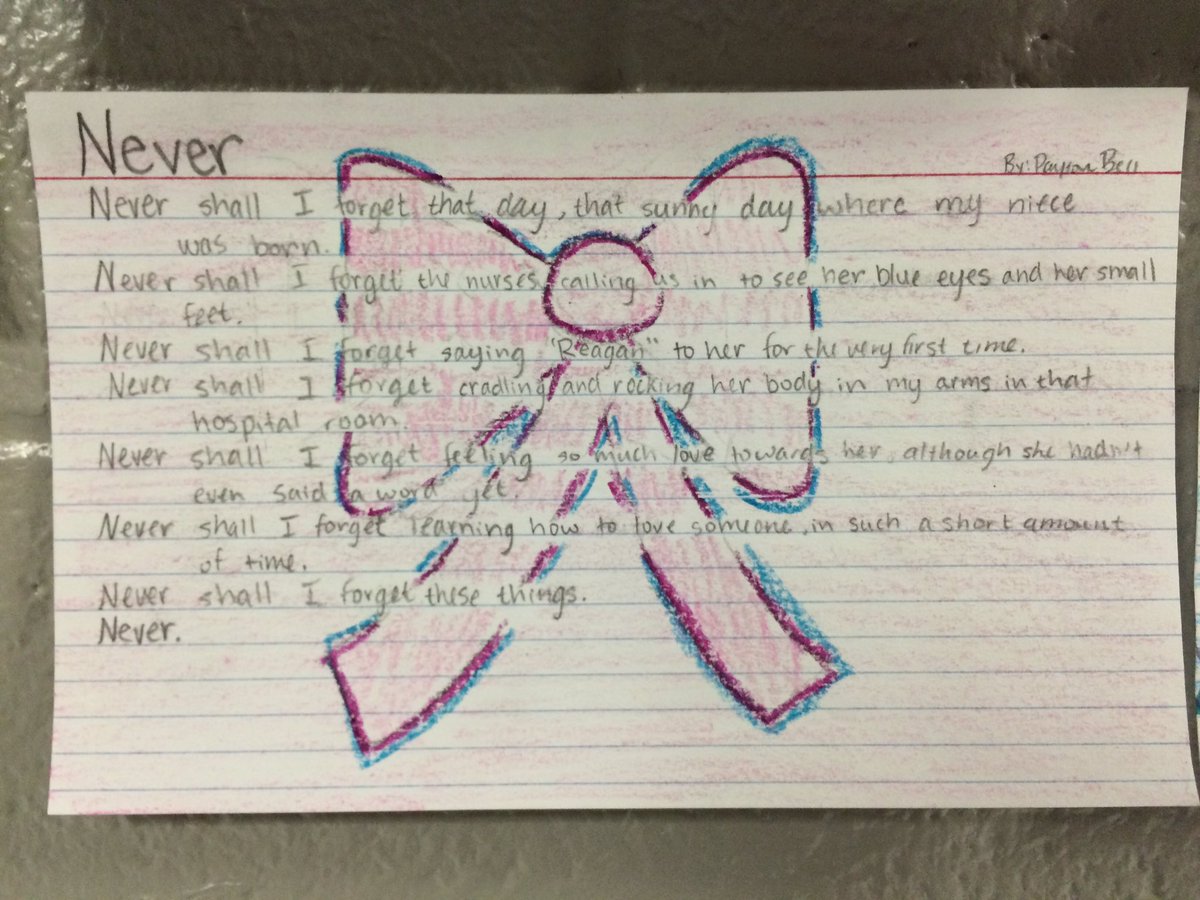 Never
By: Payton Bell
Never shall I forget that day, that sunny day where my niece
was born.
Never shall I forget the nurses calling us in to see her blue eyes and her small
feet.
Never shall I forget saying "Reagan" to her for the very first time.
Never shall I forget cradling and rocking her body in my arms in that
hospital room.
Never shall I forget feeling so much love towards her, although she hadn't
even said a word yet.
Never shall I forget learning how to love someone, in such a short amount
of time.
Never shall I forget these things.
Never.